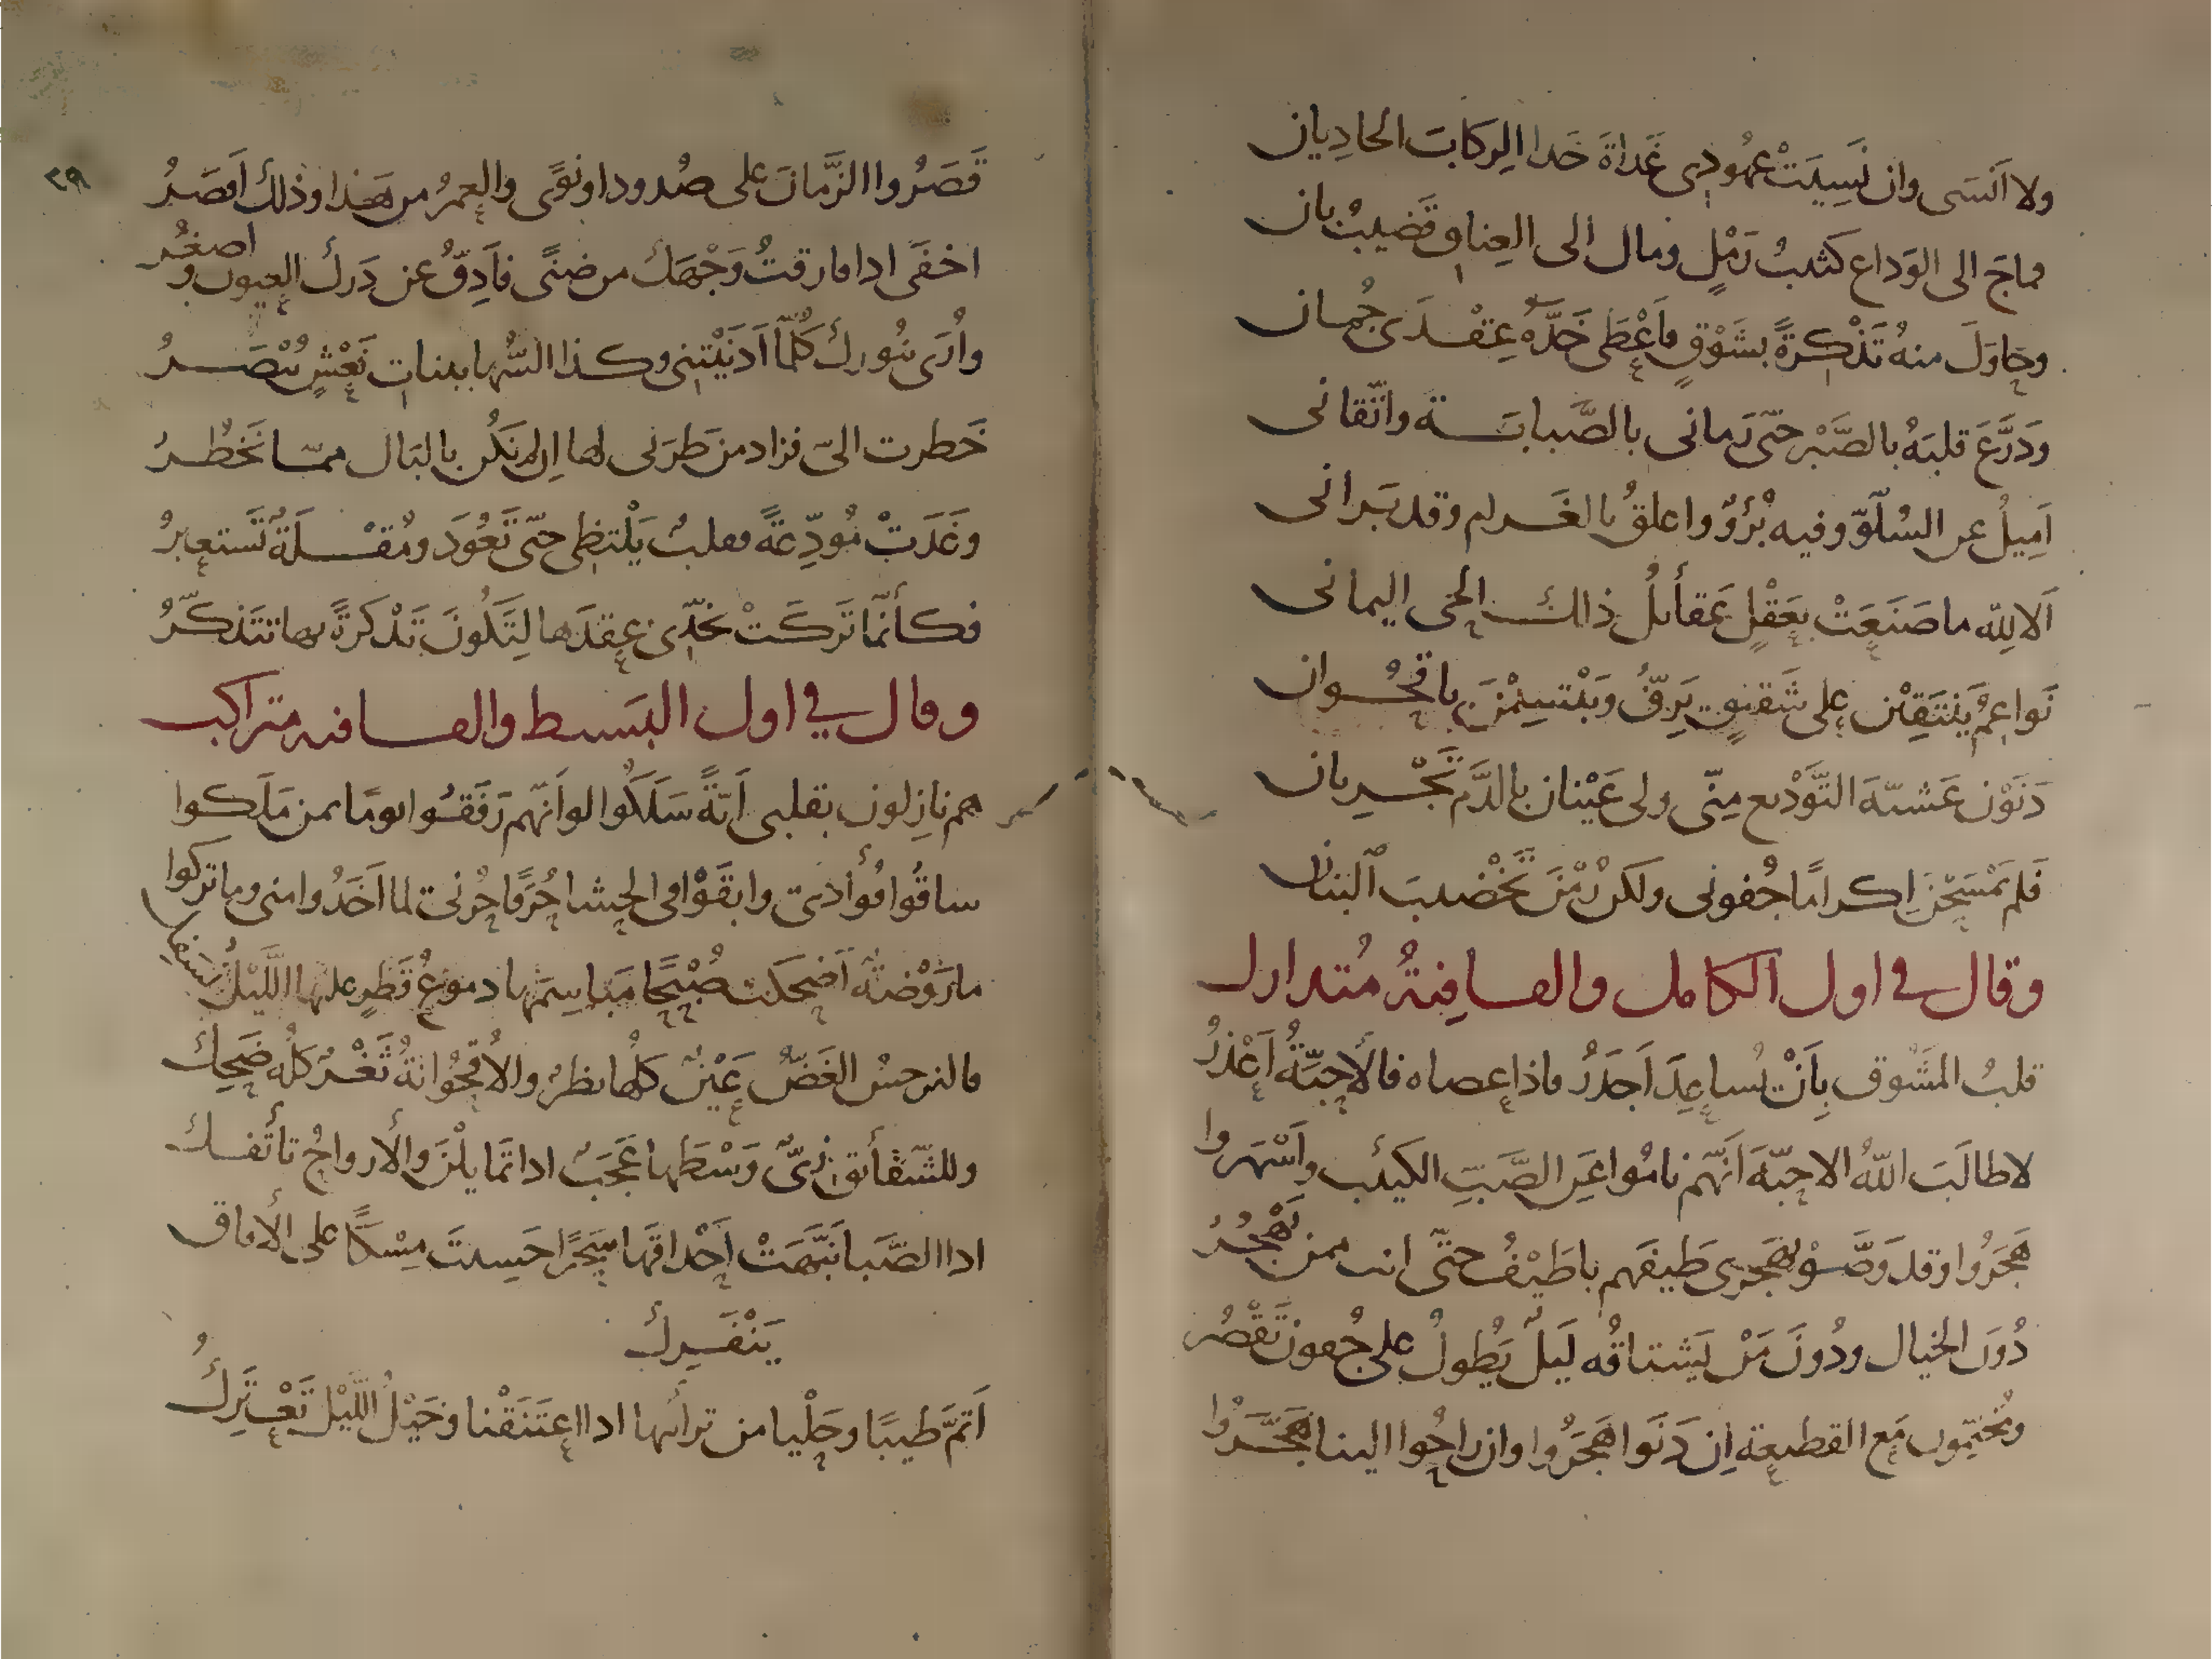 ولا اَنسَى وان نَسِيَتْ عهُودى غَداةَ حَدا الرِكابَ الحادِيان
فماجَ الى الوَداع كَثيبُ رَمْلٍ ومال الى العِناق قَضيبُ بان
وحاوَلَ منهُ تَذْكِرَةً بشَوْقٍ فاَعْطى خَدَّهُ عِقْدَى جُمان
ودَرَّعَ قلبَهُ بالصَّبْر حتّى رَمانى بالصَّبابَة واتّقانى
اَمِيلُ عن السُلُوّ وفيه بُرْؤٌ واعلقُ بالغَرام وقد بَرانى
اَلا لِلّه ما صَنَعَتْ بعَقْلٍ عَقائلُ ذاك الحَى اليمانى
نَواعِمُ يَنتَقِبْن على شَقيقٍ يَرِفُّ ويَبْتسِمْنَ باقحُوان
دَنَوْن عَشيّةَ التَّوْديع مِنّى ولى عَيْنان بالدَّم تَجْريان
فَلم يَمْسَحْنَ اِكرامًا جُفونى ولكن رُمْنَ تَخْضيبَ البَنان
وقال في اول الكامل والقافِيةُ مُتدارك
قلبُ المَشُوق بِاَنْ يُساعِدَ اَجدَرُ فاذا عصاه فالأحِبّةُ اَعْذرُ
لا طالَبَ اللّهُ الاحِبّةَ اَنّهم نامُوا عَن الصَّبّ الكئيب واَسْهَروا
هَجَرُوا وقد وَصَّوْا بهَجرى طَيفَهم يا طَيْفُ حتّى انت ممن يَهْجُرُ
دُونَ الخيال ودُونَ مَنْ يَشتاقُه لَيلٌ يَطولُ على جُفون تَقْصُر
ومُخيِّمون مَع القطيعة اِن دَنَوا هَجَرُوا وان راحُوا الينا هَجَّرُوا
٣٩
قَصَرُوا الزَّمانَ على صُدود او نَوًى والعمرُ من هَذا وذلك اَقصَرُ
اخفَى اذا فارقتُ وَجْهَك من ضنًى فاَدِقُّ عن دَرك العيون واصغُر
واُرَى بنُورك كُلّما اَدنَيْتنى وكذا السُّها ببنات نَعْشٍ تُبْصَرُ
خَطرت الىّ فزاد من طَرَبى لها اِن لم تَكُن بالبَال ممّا تَخطُرُ
وغَدَتْ مُودِّعةً فقلبٌ يَلْتظى حتّى تَعُودَ ومُقْلَةٌ تَستعبرُ
فكأنّما تَركَتْ بخَدّى عِقدَها لِتَكُونَ تَذْكرَةً بها تتَذكّرُ
وقال في اول البَسيط والقافيه متراكب
هم نازِلون بقلبى اَيّةً سَلَكُوا لو اَنّهم رَفَقُوا يومًا بمن مَلَكوا
ساقُوا فُؤادى وابقَوْا فى الحشا حُرَقًا حُزنى لما اَخَذُوا منى وما تركوا
ما رَوْضةٌ اَضحَكت صُبْحًا مَباسِمَها دموعُ قَطرٍ عليها اللَّيْلُ تنسفك
فالنرجسُ الغَضُّ عَيْنٌ كلُّها نظرٌ والاُقحُوانةُ ثَغْرٌ كلُّه ضَحِك
وللشّقائق زِىٌّ وَسْطَها عَجَبٌ اذا تَمايلْنَ والأرواحُ تأتَفك
اذا الصَّبا نَبَّهَتْ اَحْداقَها سَحَرًا حَسِبتَ مِسْكًا على الأفاق
يَنْفَرِكُ
اَتَمَّ طيبًا وحَلْيا من ترائبها اذا اعتَنَقْنا وخَيْلُ اللَّيْل تَعْتَرِكُ